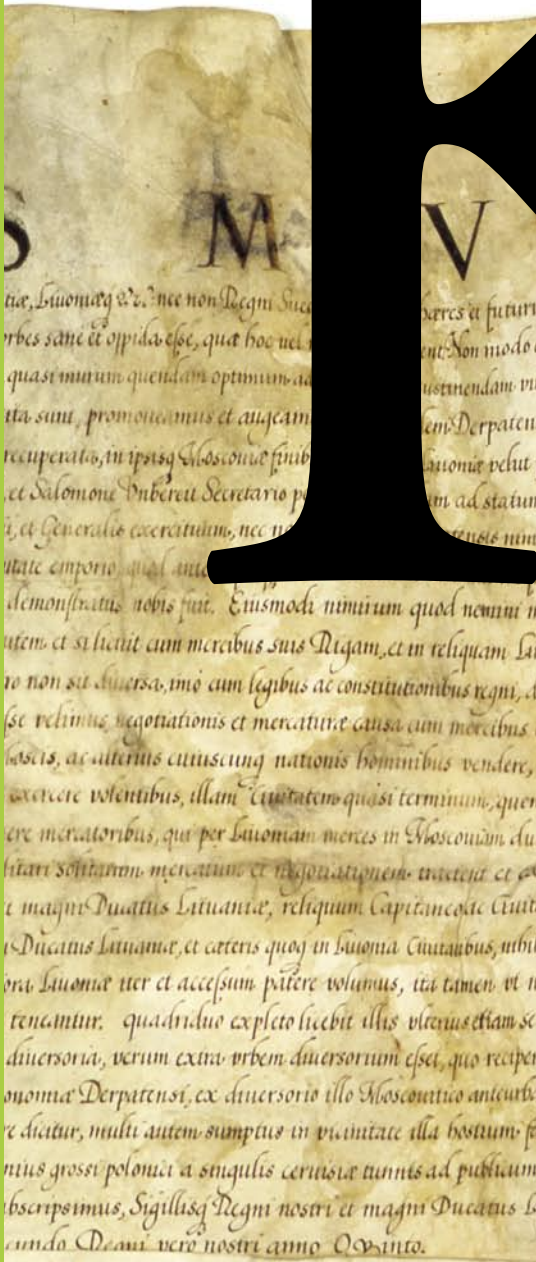 S M V
K
tiæ, Liuoniæq etc. nec non Regni Suec hæres et futur
orbes sane et oppida esse, quæ hoc uel ent. Non modo
quasi murum quendam optimum ad ustinendam
ita sunt, promoueamus et augeam dem Derpaten
recuperata, in ipsisq Moscouiæ finib Liuoniæ velut
et Salomone Vnbereit Secretario p m ad statum
et Generalis exercituum, nec n tensis nim
uitate emporio, quod ante
demonstratus nobis fuit. Eiusmodi nimirum quod nemini
utem et si licuit cum mercibus suis Rigam, et in reliquam Li
ro non sit diuersa, imò cum legibus ac constitutionibus regni,
sse velimus negotiationis et mercaturæ causa cum mercibus
Moscis, ac alterius cuiuscunq nationis hominibus vendere,
exercere volentibus, illam Ciuitatem quasi terminum, quem
ere mercatoribus, qui per Liuoniam merces in Moscouiam du
solitarum mercatum et negotiationem tractent et
magni Ducatus Lituaniæ, reliquum Capitaneo ac Ciuit
Ducatus Lituaniæ, et cæteris quoq in Liuonia Ciuitatibus, nihil
ora Liuoniæ iter et accessum patere volumus, ita tamen vt
teneantur. quadriduo expleto licebit illis vlterius etiam se
diuersoria, verum extra vrbem diuersorium esset, quo recipe
onomiæ Derpatensi, ex diuersorio illo Moscouitico anteurb
re dicitur, multi autem sumptus in vicinitate illa hostium
nius grossi polonici a singulis ceruisiæ tunnis ad publicum
ubscripsimus, Sigillisq Regni nostri et magni Ducatus L
cundo Regni vero nostri anno Quinto.